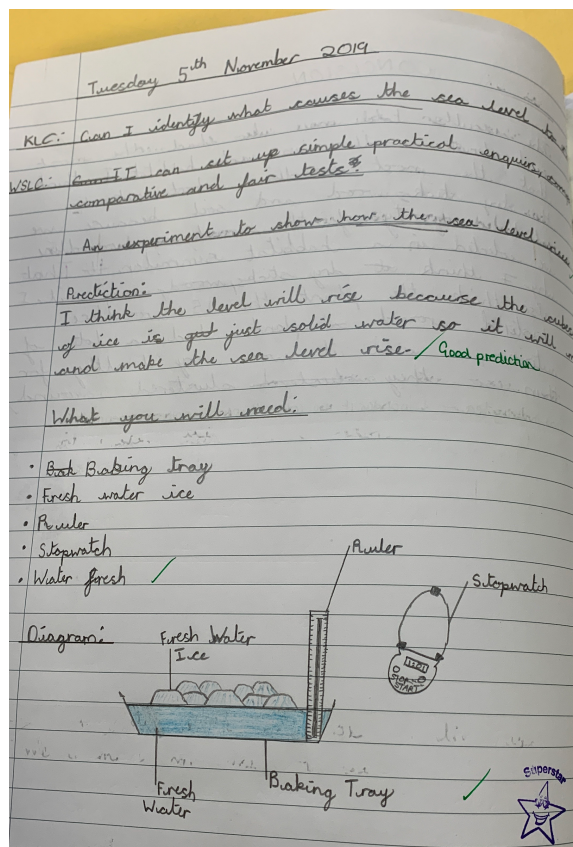 Tuesday 5th November 2019
KLC: Can I identify what causes the sea level to
WSLC: I can set up simple practical enquiry,
comparative and fair tests?
An experiment to show how the sea level
Prediction:
I think the level will rise because the cubes
of ice is just solid water so it will
and make the sea level rise. Good prediction
What you will need:
• Baking tray
• Fresh water ice
• Ruler
• Stopwatch
• Water fresh
Diagram:
Fresh Water
Ice
Ruler
Stopwatch
STOP
START
Fresh
Water
Baking Tray
Superstar